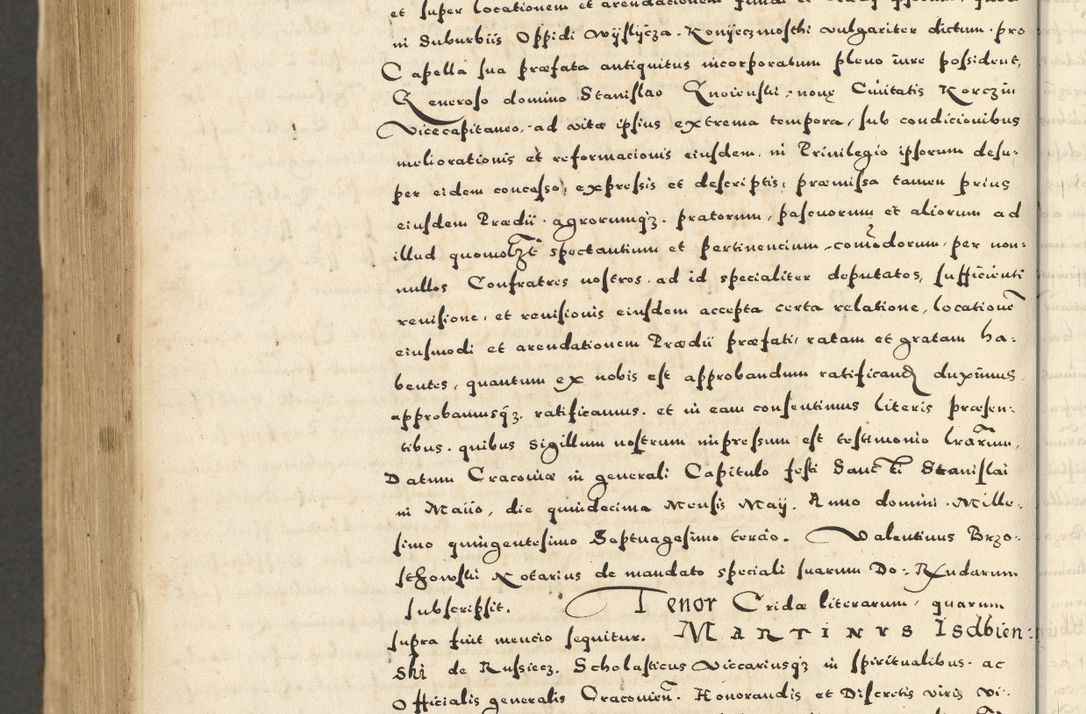 et super locationem et arendationem
in Suburbiis Oppidi Wyslycza. Konyeczmosthi vulgariter dictum. pro
Capella sua præfata antiquitus incorporatum pleno iure possident,
Generoso domino Stanislao Gnoienski, nonę Ciuitatis Korczin
Vicecapitaneo, ad vitæ ipsius extrema tempora, sub condicionibus
meliorationis et reformacionis eiusdem, in Priuilegio ipsorum desu-
per eidem concesso, expressis et descriptis, præmissa tamen prius
eiusdem Prædii. agrorumqz. pratorum, pascuorum et aliorum ad
illud quomolzt spectantium et pertinencium, comodorum, per non-
nullos Confratres nostros, ad id specialiter deputatos, sufficienti
reuisione, et reuisionis eiusdem accepta certa relatione, locationem
eiusmodi et arendationem Prædii præfati, ratam et gratam ha-
bentes, quantum ex nobis est approbandum ratificand duximus
approbamusqz. ratificamus. et in eam consentimus literis præsen-
tibus. quibus Sigillum nostrum impressum est testimonio lrarum,
Datum Cracouiæ in generali Capitulo festi Sancti Stanislai
in Maiio, die quindecima Mensis Maij. Anno domini Mille-
simo quingentesimo Septuagesimo tercio. Valentinus Brzo-
sthowski Notarius de mandato speciali suarum Do: Rndarum
subscripsit. Tenor Cridæ literarum, quarum
supra fuit mencio sequitur. MARTINVS Isdbien-
ski de Russiecz. Scholasticus Viccariusqz in spiritualibus. ac
Officialis generalis Cracouien. Honorandis et Discretis viris Vi-